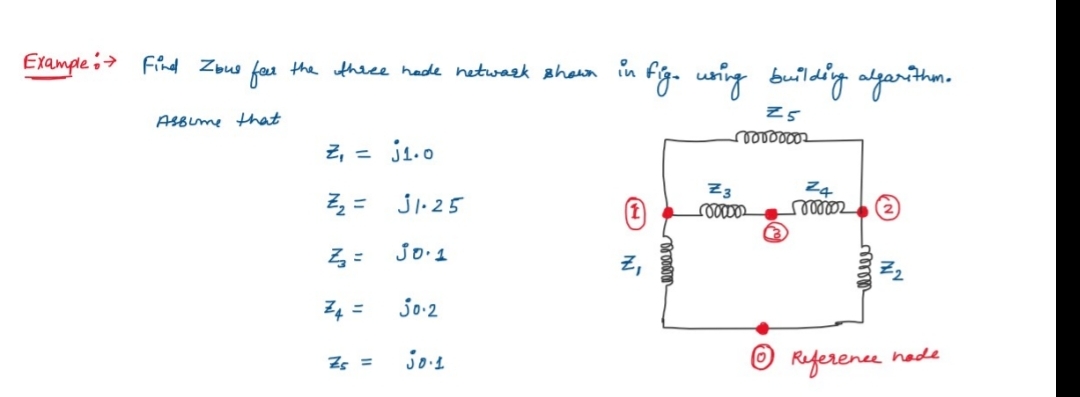 Example :→ Find Zbus for the three node network shown in fig. using building algorithm.
Assume that
Z1 = j1.0
Z2 = j1.25
Z3 = j0.1
Z4 = j0.2
Z5 = j0.1
Z5
Z3 Z4
1 2
3
Z1 Z2
0 Reference node